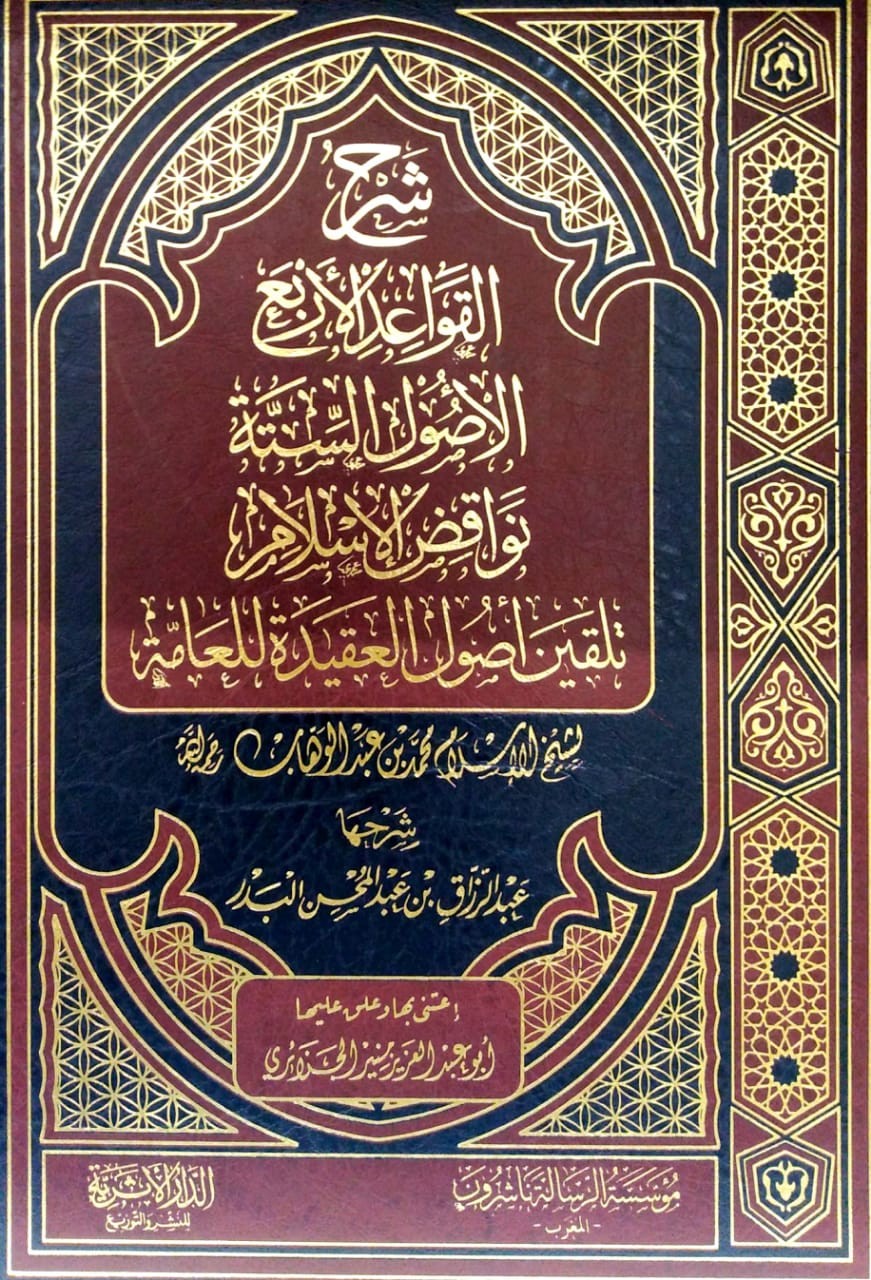 شرح
القواعد الأربع
الأصول الستة
نواقض الإسلام
تلقين أصول العقيدة للعامة
لشيخ الإسلام محمد بن عبد الوهاب رحمه الله
شرحها
عبد الرزاق بن عبد المحسن البدر
اعتنى بها وعلق عليها
أبو عبد العزيز منير الجزائري
مؤسسة الرسالة ناشرون
- المغرب -
الدار الأثرية
للنشر والتوزيع